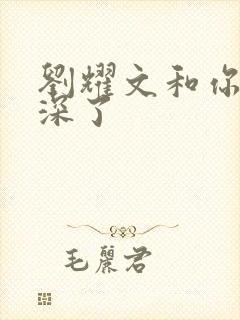 劉耀文和你
深了
毛麗君